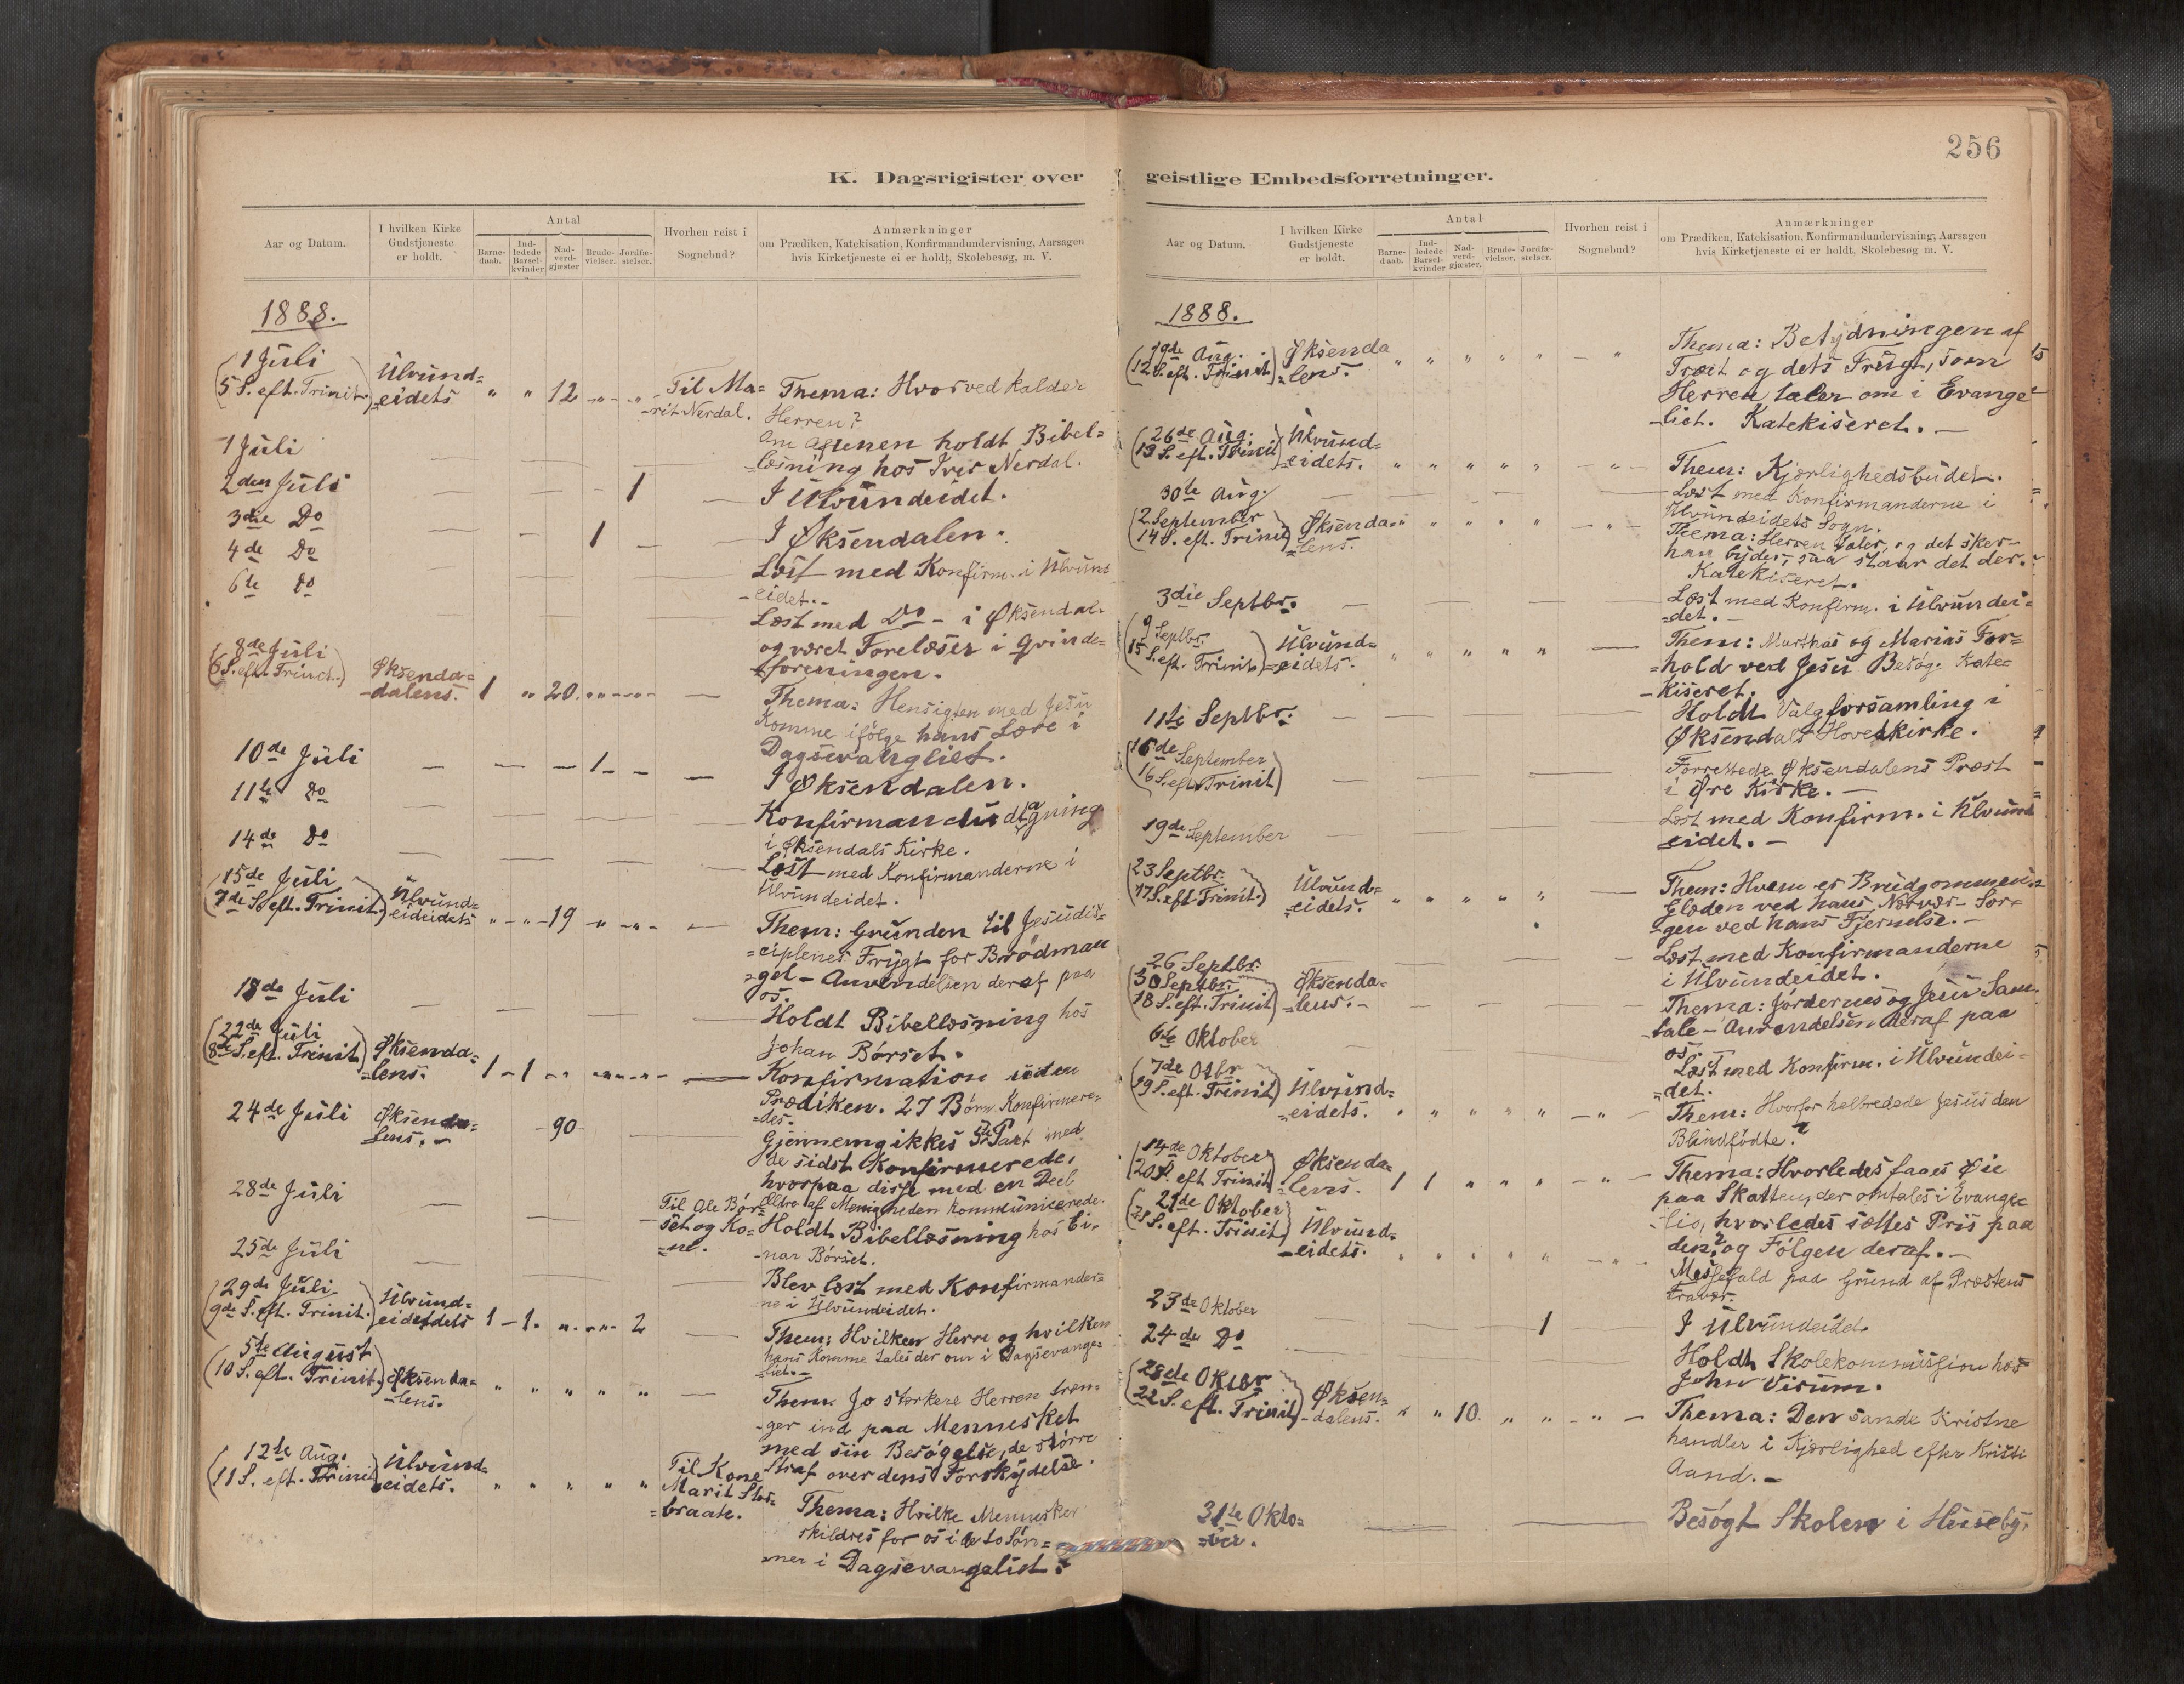 256
K. Dagsrigister over
geistlige Embedsforretninger.
Aar og Datum.
I hvilken Kirke
Gudstjeneste
er holdt.
Antal
Barne-
daab.
Ind-
ledede
Barsel-
kvinder
Nad-
verd-
gjæster
Brude-
vielser.
Jordfæ-
stelser.
Hvorhen reist i
Sognebud?
Anmærkninger
om Prædiken, Katekisation, Konfirmandundervisning, Aarsagen
hvis Kirketjeneste ei er holdt, Skolebesøg, m. V.
1888.
1 Juli
(5 S. eft. Trinit.)
Ulvund=
=eidets
" " 12 " "
Til Ma=
-rit Nerdal.
Thema: Hvorved kalder
Herren?
1 Juli
Om Aftenen holdt Bibel=
-læsning hos Iver Nerdal.
2den Juli
1
I Ulvundeidet.
3die Do
1
I Øksendalen.
4de Do
Læst med Konfirm. i Ulvund
-eidet.-
6te Do
Læst med Do - i Øksendal.
og været Forelæser i Qvinde-
foreningen.
8de Juli
(6 S. eft. Trinit.)
Øksenda=
-dalens.
1 " 20. " "
Thema: Hensigten med Jesu
Komme ifølge hans Lære i
Dagsevangliet.
10de Juli
1
I Øksendalen.
11te Do
Konfirmandudtagning
i Øksendals Kirke.
14de Do
Læst med Konfirmanderne i
Ulvundeidet.
(15de Juli
7de S. eft. Trinit.)
Ulvund=
eideidets
" - " - 19 " "
Them: Grunden til Jesu dis=
=ciplenes Frygt for Brødman
=gel - Anvendelsen deraf paa
os.
18de Juli
Holdt Bibellæsning hos
Johan Børset.
(22de Juli
8de S. eft. Trinit)
Øksenda=
=lens.
1 - 1 - " " "
Konfirmation uden
Prædiken. 27 Børn Konfirmere-
=des.
24de Juli
Øksenda=
lens. -
90
Gjennemgikkes 5te Part med
de sidst Konfirmerede,
hvorpaa disse med en Deel
Ældre af Menigheden kommunicerede.
28de Juli
Til Ole Bør=
set og Ko=
=ne.
Holdt Bibellæsning hos Ei-
-nar Børset.
25de Juli
Blev læst med Konfirmander=
ne i Ulvundeidet.
(29de Juli
9de S. eft. Trinit.)
Ulvund=
eidetdets
1 - 1. " " 2
Them: Hvilken Herre og hvilken
hans Komme tales der om i Dagsevange=
liet.-
5te August
(10 S. eft. Trinit.)
Øksenda=
-lens.
" " " " "
Them. Jo stærkere Herren træn-
-ger ind paa Mennesket
med sin Besøgelse, de større
Straf over dens Forskydelse.
12te Aug.
(11 S. eft. Trinit)
Ulvund=
eidets.
" " " " "
Til Kone
Marit Stor=
=braate.
Thema: Hvilke Mennesker
skildres for os i de to Søn=
=ner i Dagsevangeliet?
Aar og Datum.
I hvilken Kirke
Gudstjeneste
er holdt.
Antal
Barne-
daab.
Ind-
ledede
Barsel-
kvinder
Nad-
verd-
gjæster.
Brude-
vielser.
Jordfæ-
stelser.
Hvorhen reist i
Sognebud?
Anmærkninger
om Prædiken, Katekisation, Konfirmandundervisning, Aarsagen
hvis Kirketjeneste ei er holdt, Skolebesøg, m. V.
1888.
(19de Aug.
12 S. eft. Trinit)
Øksenda
=lens.
" " " " " - "
Thema: Betydningen af
Træit og dets Frugt, som
Herren taler om i Evange-
-liet. Katekiseret. -
(26de Aug.
13 S. eft. Trinit)
Ulvund=
-eidets.
" " " " " - "
Them: Kjærlighedsbudet.
30te Aug.
Læst med Konfirmanderne i
Ulvundeidets Sogn.
(2 September
14 S. eft. Trinit)
Øksenda=
=lens.
" " " " " - "
Thema: Herren taler, og det sker-
han byder, saa staar det der.
Katekiseret.
3die Septbr.
Læst med Konfirm. i Ulvundei=
=det. -
(9 Septbr.
15 S. eft. Trinit.)
Ulvund=
=eidets.
" " " " "
Them: Marthas og Marias For=
=hold ved Jesu Besøg. Kate=
-kiseret.
11te Septbr:
Holdt Valgforsamling i
Øksendals Hovedkirke.
(16de September
16 S. eft. Trinit)
Forrettede Øksendalens Præst
i Øre Kirke. -
19de September
Læst med Konfirm. i Ulvund
eidet. -
(23 Septbr.
17 S. eft. Trinit.)
Ulvund=
=eidets.
" " " " "
Them: Hvem er Brudgommen.
Glæden ved hans Nærvær- Sor=
=gen ved hans Fjernelse. -
26 Septbr.
Læst med Konfirmanderne
i Ulvundeidet.
(30 Septbr.
18 S. eft. Trinit)
Øksenda=
=lens. -
Thema: Jødernes og Jesu Sam.
tale - Anvendelsen deraf paa
os.
6te Oktober
Læst med Konfirm. i Ulvundei-
=det.
(7de Otbr
19 S. eft. Trinit)
Ulvund=
=eidets.
" " " " " - "
Them: Hvorfor helbredede Jesus den
Blindfødte?
(14de Oktober
20 S. eft Trinit)
Øksenda=
=lens.
1 1 " " " - "
Thema: Hvorledes faaes Øie
paa Skatten, der omtales i Evange
-lio, hvorledes sættes Pris paa
den? og Følgen deraf. -
(21de Oktober
21 S. eft. Trinit)
Ulvund=
-eidets.
" " " " " "
Messefald paa Grund af Præstens
Fravær.
23de Oktober
1
I Ulvundeidet.
24de Do
Holdt Skolekommission hos
John Virum.
(28de Oktbr
22 S. eft. Trinit)
Øksen=
-dalens.
" " 10. " " - "
Thema: Den sande Kristne
handler i Kjærlighed efter Kristi
Aand. -
31te Okto=
=ber.
Besøgt Skolen i Huseby.